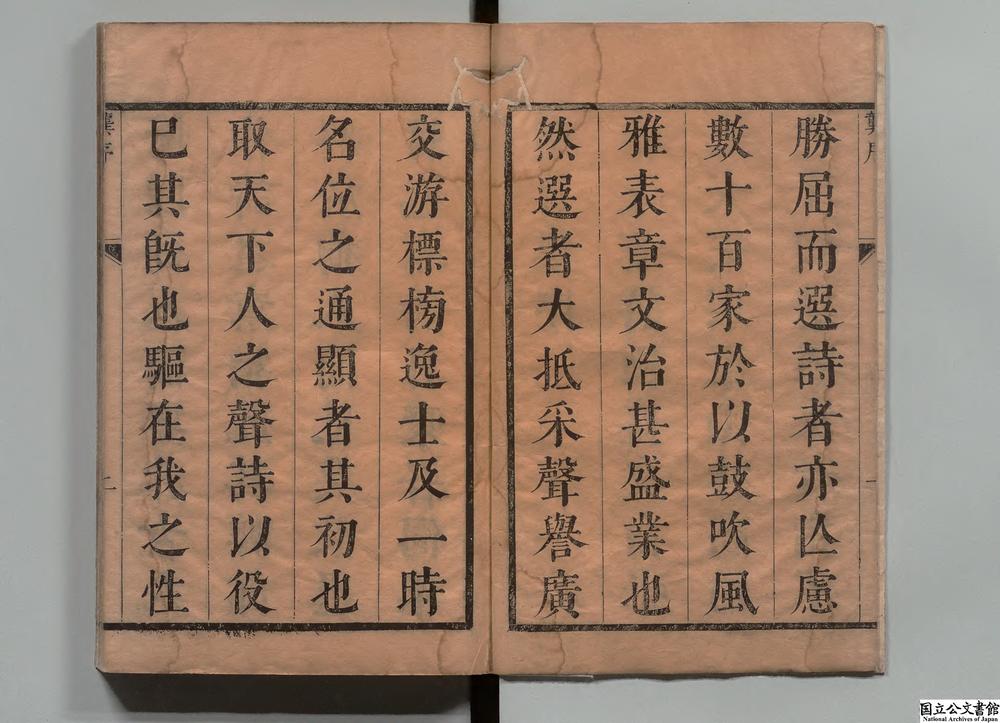 勝屈而選詩者亦亾慮
數十百家於以鼓吹風
雅表章文治甚盛業也
然選者大抵采聲譽廣
交游標榜逸士及一時
名位之通顯者其初也
取天下人之聲詩以役
巳其旣也驅在我之性
龔序
一
龔序
二
国立公文書館
National Archives of Japan